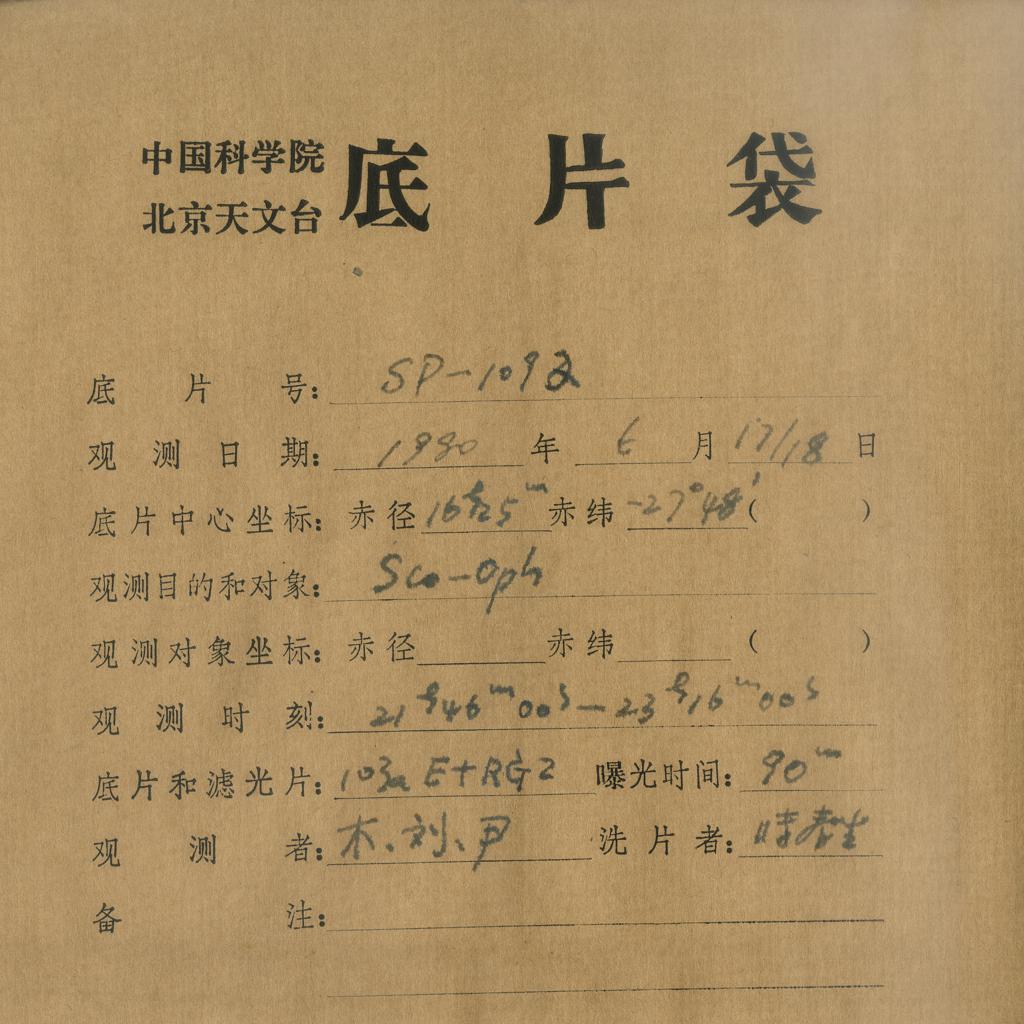 中国科学院
北京天文台
底片袋
底片号: SP-109
观测日期: 1980年 6月 17/18日
底片中心坐标: 赤径 16h25m 赤纬 -27°48′( )
观测目的和对象: Sco-Oph
观测对象坐标: 赤径 赤纬 ( )
观测时刻: 21h46m00s-23h16m00s
底片和滤光片: 103a E+RG2 曝光时间: 90m
观测者: 木、刘、尹 洗片者:
备注: